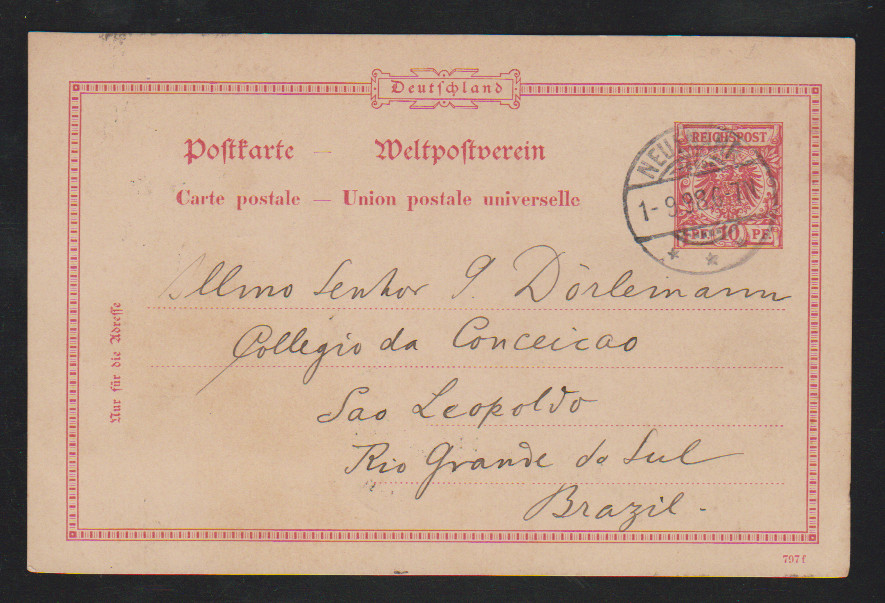 Deutschland
Postkarte — Weltpostverein
Carte postale — Union postale universelle
REICHSPOST
10 PF.
1-9.98.6-7N
* *
Illmo Senhor P. Dörlemann
Collegio da Conceicao
Sao Leopoldo
Rio Grande do Sul
Brazil.
Nur für die Adresse
797f